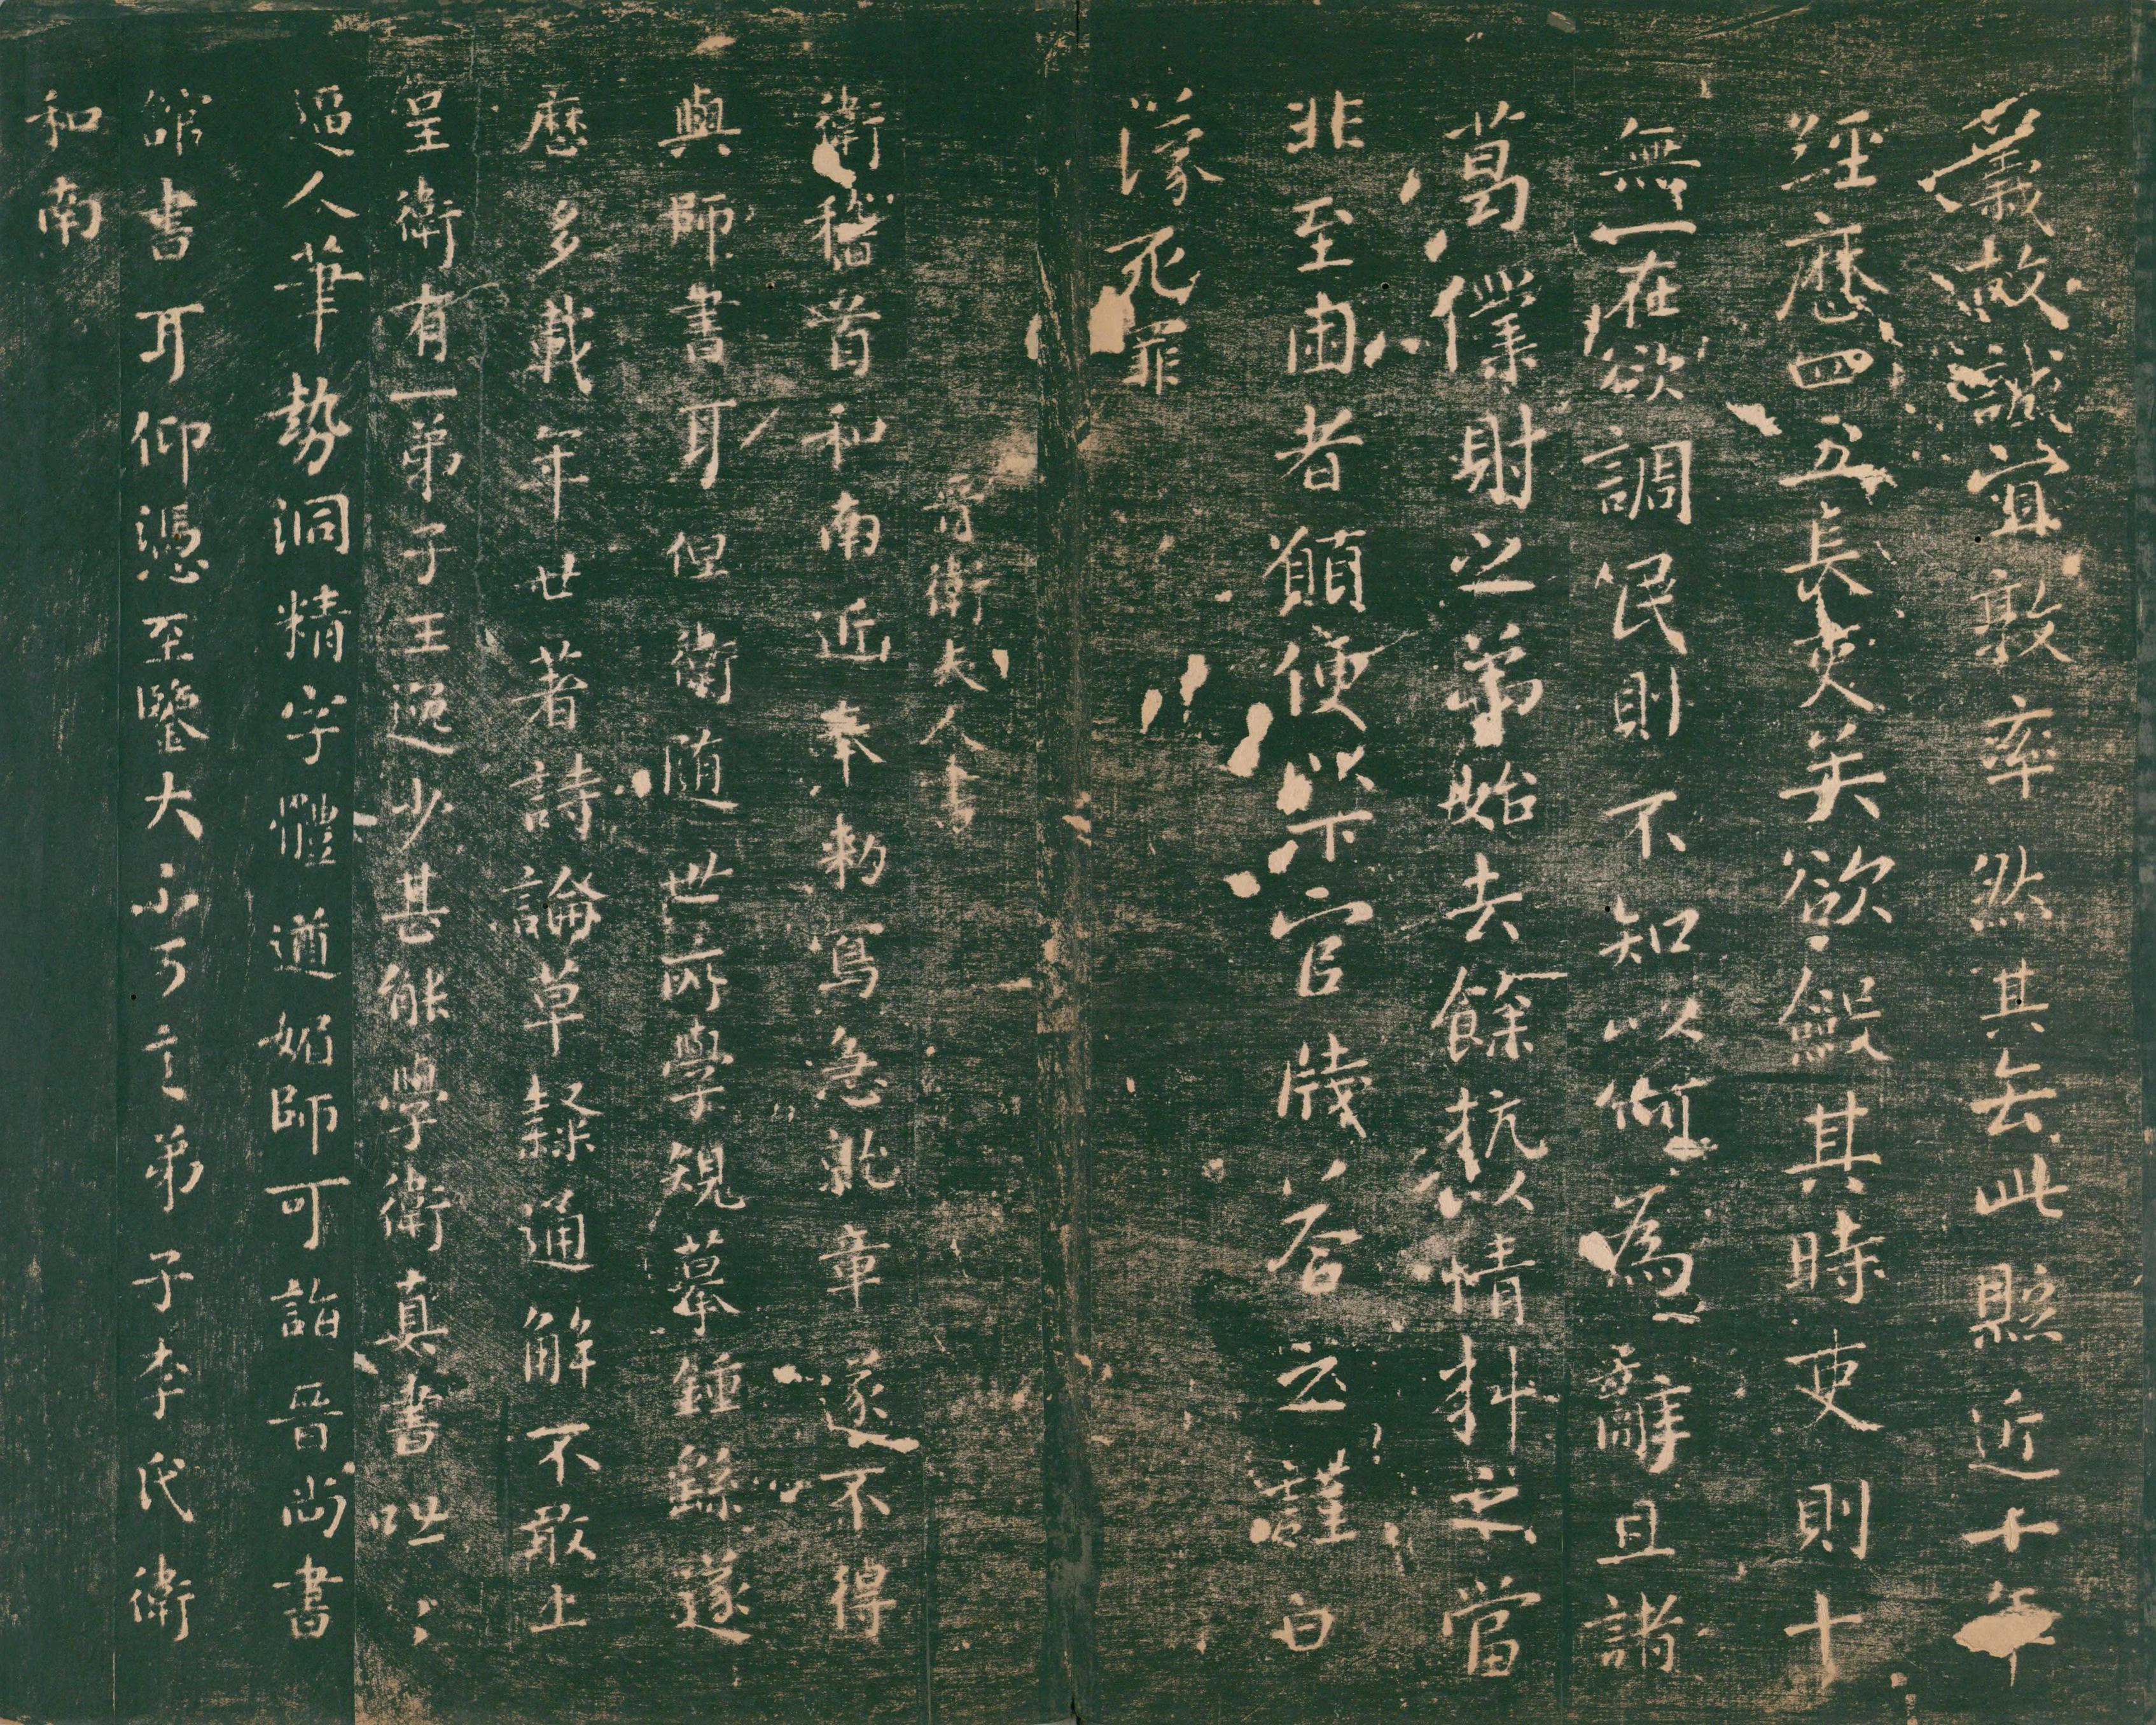 義故誠宜敦率然其去此縣近十年
經歷四五長吏矣欲其時吏則十
無一在欲調民則不知以何為辭且諸
葛僕射之弟始去餘杭以情料之當
非至困者願便以下官牋答云謹白
濛死罪
晉衛夫人書
衛稽首和南近奉勑寫急就章遂不得
與師書耳但衛隨世所學規摹鍾繇遂
歷多載年廿著詩論草隸通解不敢上
呈衛有一弟子王逸少甚能學衛真書咄咄
逼人筆勢洞精字體遒媚師可詣晉尚書
館書耳仰憑至鑒大不可言弟子李氏衛
和南